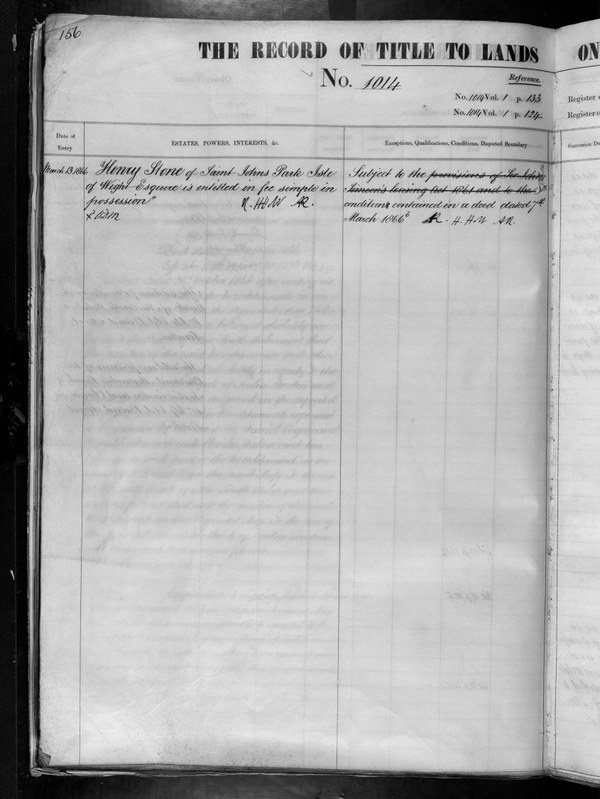 156
THE RECORD OF TITLE TO LANDS
No. 1014
Reference.
No. 1014 Vol. 1 p. 133
No. 1014 Vol. 1 p. 124
Date of
Entry
ESTATES, POWERS, INTERESTS, &c.
Exceptions, Qualifications, Conditions, Disputed Boundary
March 13 1866
Henry Stone of Saint Johns Park Isle
of Wight Esquire is entitled in fee simple in
possession
Subject to the provisions of
and to the
conditions contained in a deed dated 7th
March 1866
ON
Register
Register
Succession Du